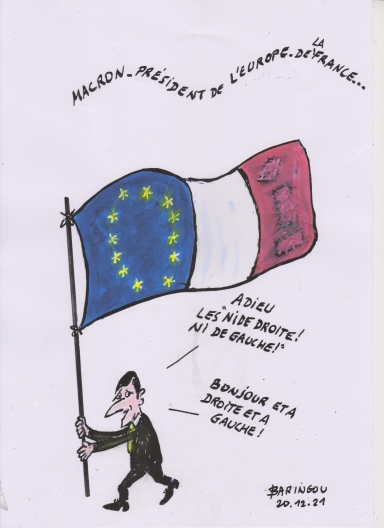 MACRON - PRÉSIDENT DE L'EUROPE - DE LA FRANCE...
ADIEU
LES "NI DE DROITE!
NI DE GAUCHE!"
BONJOUR ET A
DROITE ET A
GAUCHE!
BARINGOU
20.12.21